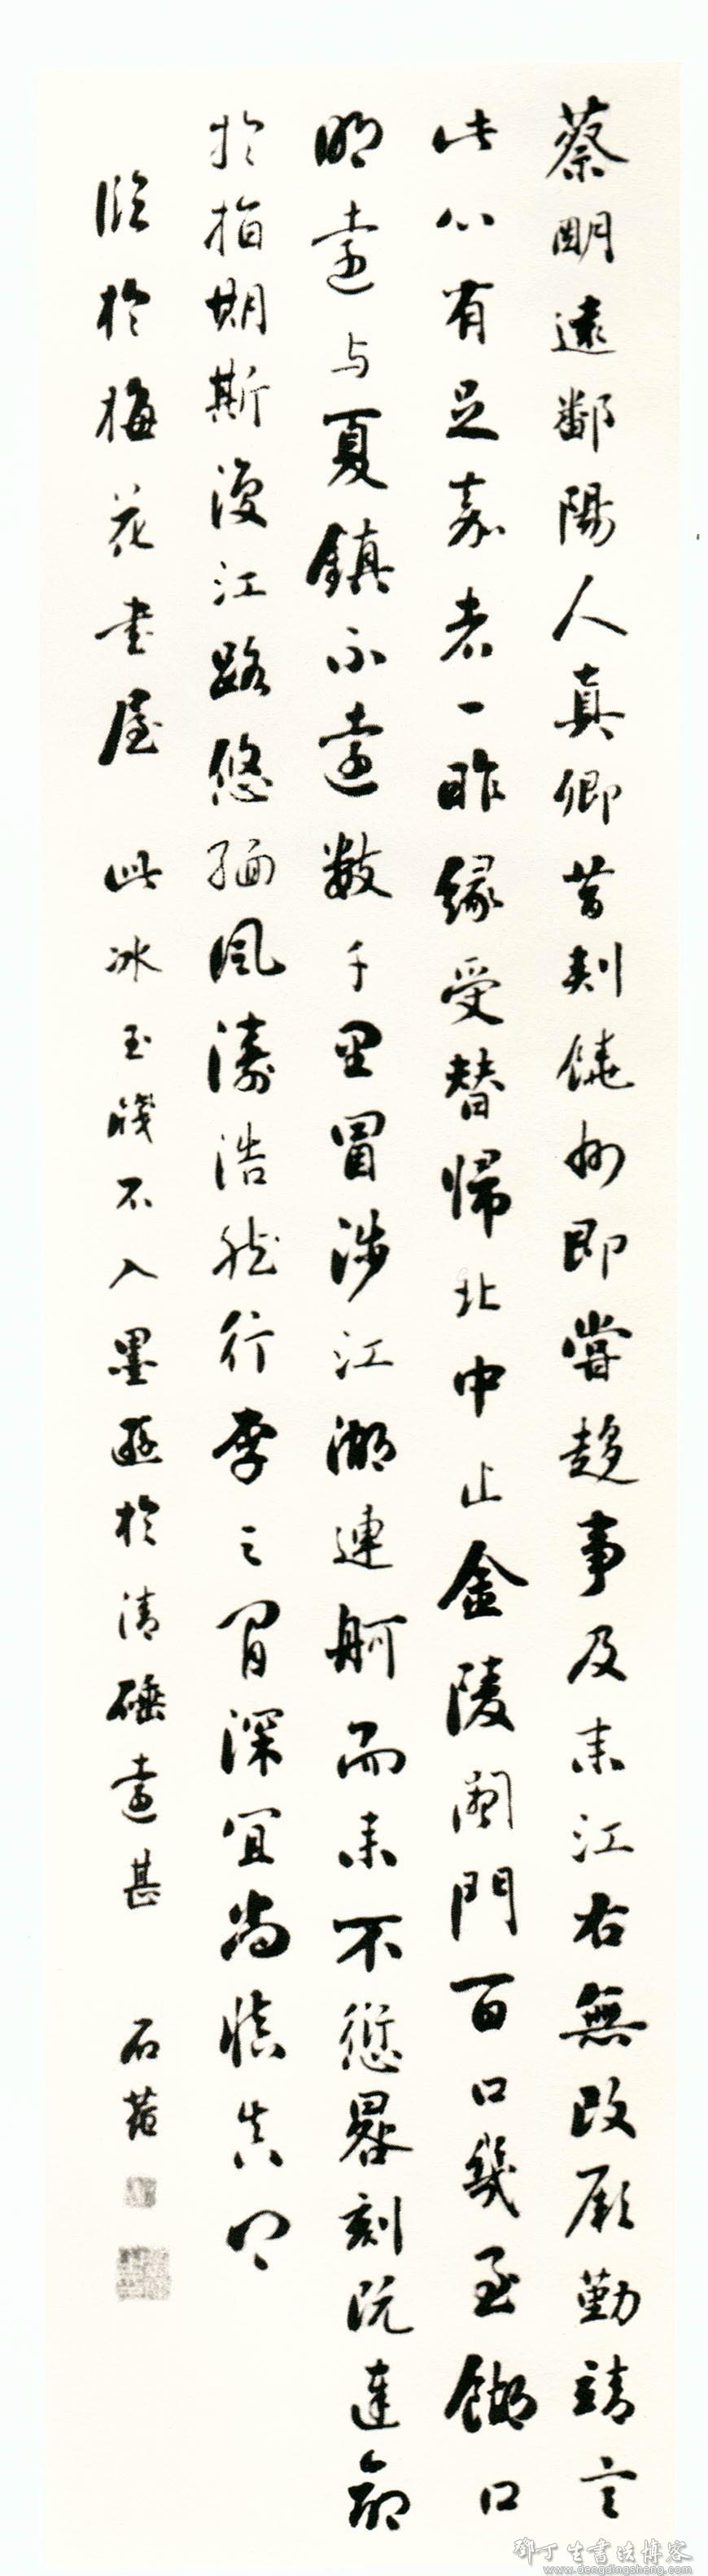 蔡明遠鄱陽人真卿昔刺饒州即嘗趍事及来江右無改厥勤靖言
此心有足嘉者一昨緣受替歸北中止金陵闔門百口幾至餬口
明遠与夏鎮不遠數千里冒涉江湖連舸而来不愆晷刻既達命
於指期斯復江路悠緬風濤浩然行李之間深宜尚慎真卿
臨於梅花書屋 此冰玉牋不入墨遜於清硾遠甚 石菴
鄧丁生書法博客
www.dengdingsheng.com